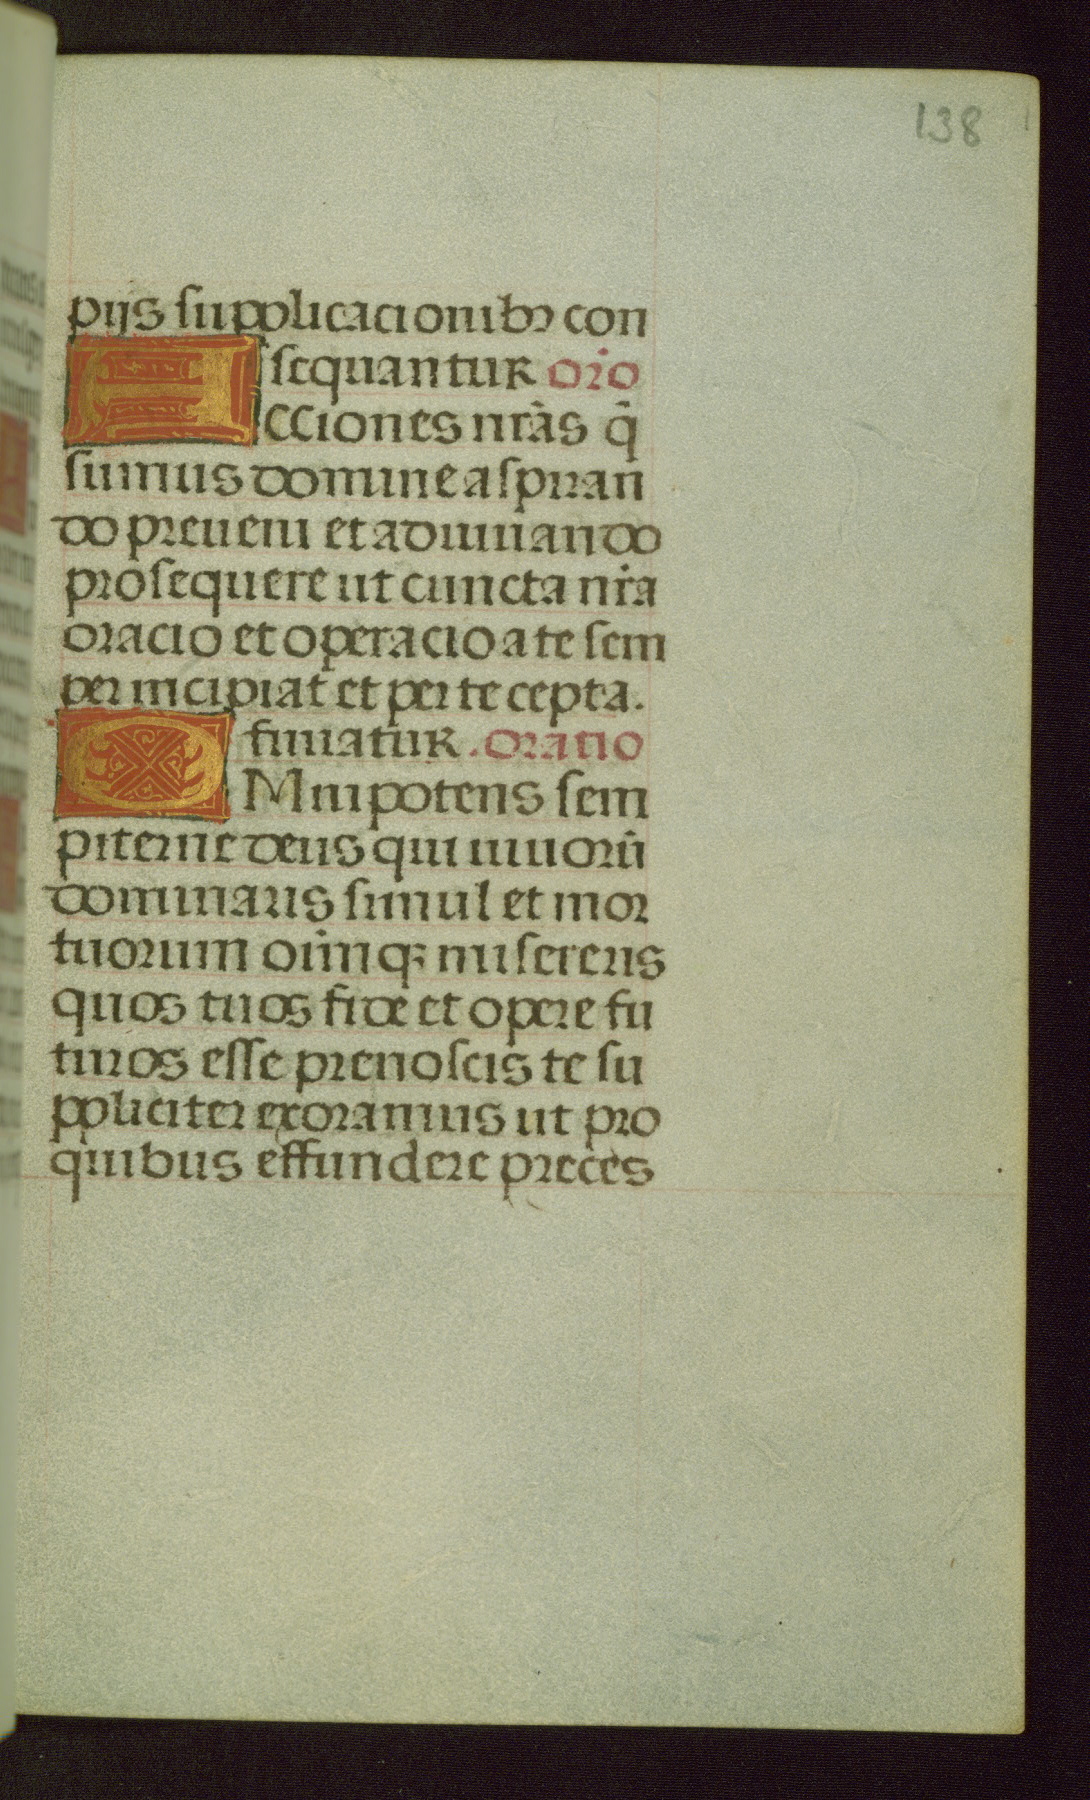 138
pijs supplicacionibꝰ con
sequantur or̄o
Acciones nr̄as q̄
sumus domine aspiran
do preveni et adiuuando
prosequere ut cuncta nr̄a
oracio et operacio a te sem
per incipiat et per te cepta.
finiatur. oratio
OMnipotens sem
piterne deus qui uiuorū
dominaris simul et mor
tuorum oīmqꝫ misereris
quos tuos fide et opere fu
turos esse prenoscis te su
ppliciter exoramus ut pro
quibus effundere preces